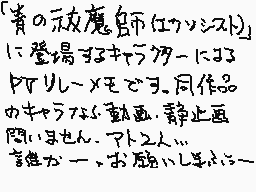 「青の祓魔師(エクソシスト)」
に登場するキャラクターによる
PVリレーメモです。同作品
のキャラなら動画、静止画
問いません。アト2人…
誰かー、お願いしまぷぷー